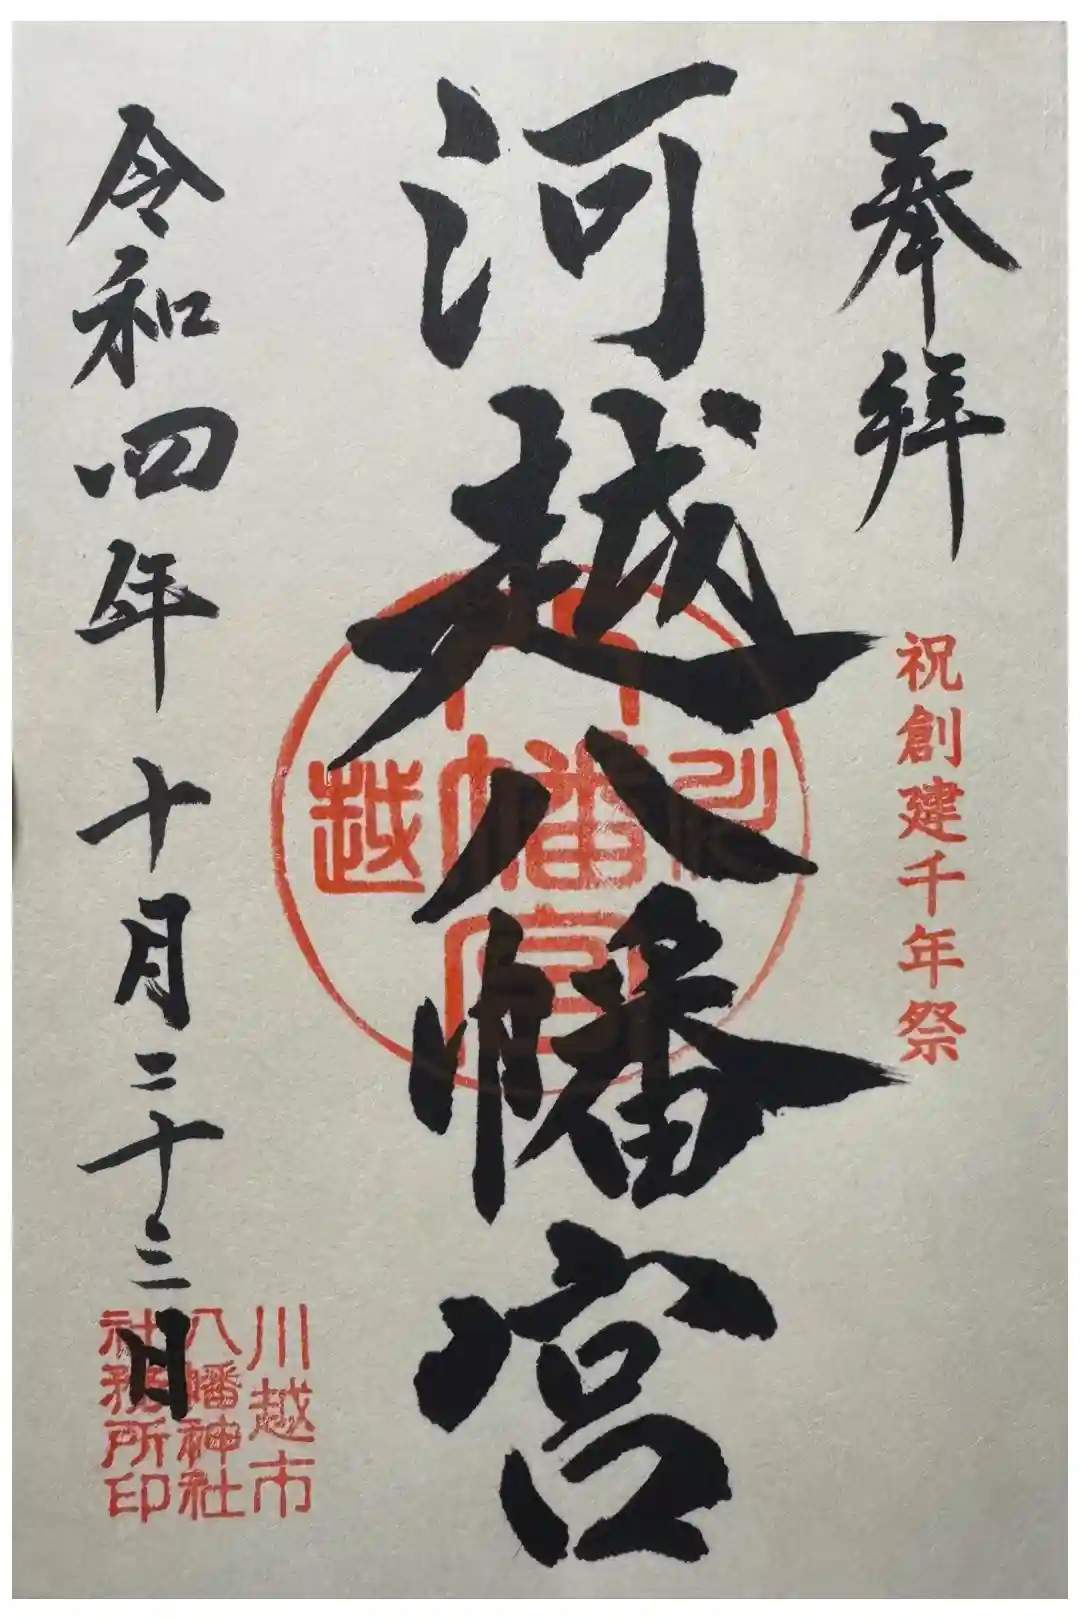 奉拝
祝創建千年祭
河越八幡宮
八幡宮
越
令和四年十月二十三日
川越市
八幡神社
社務所印